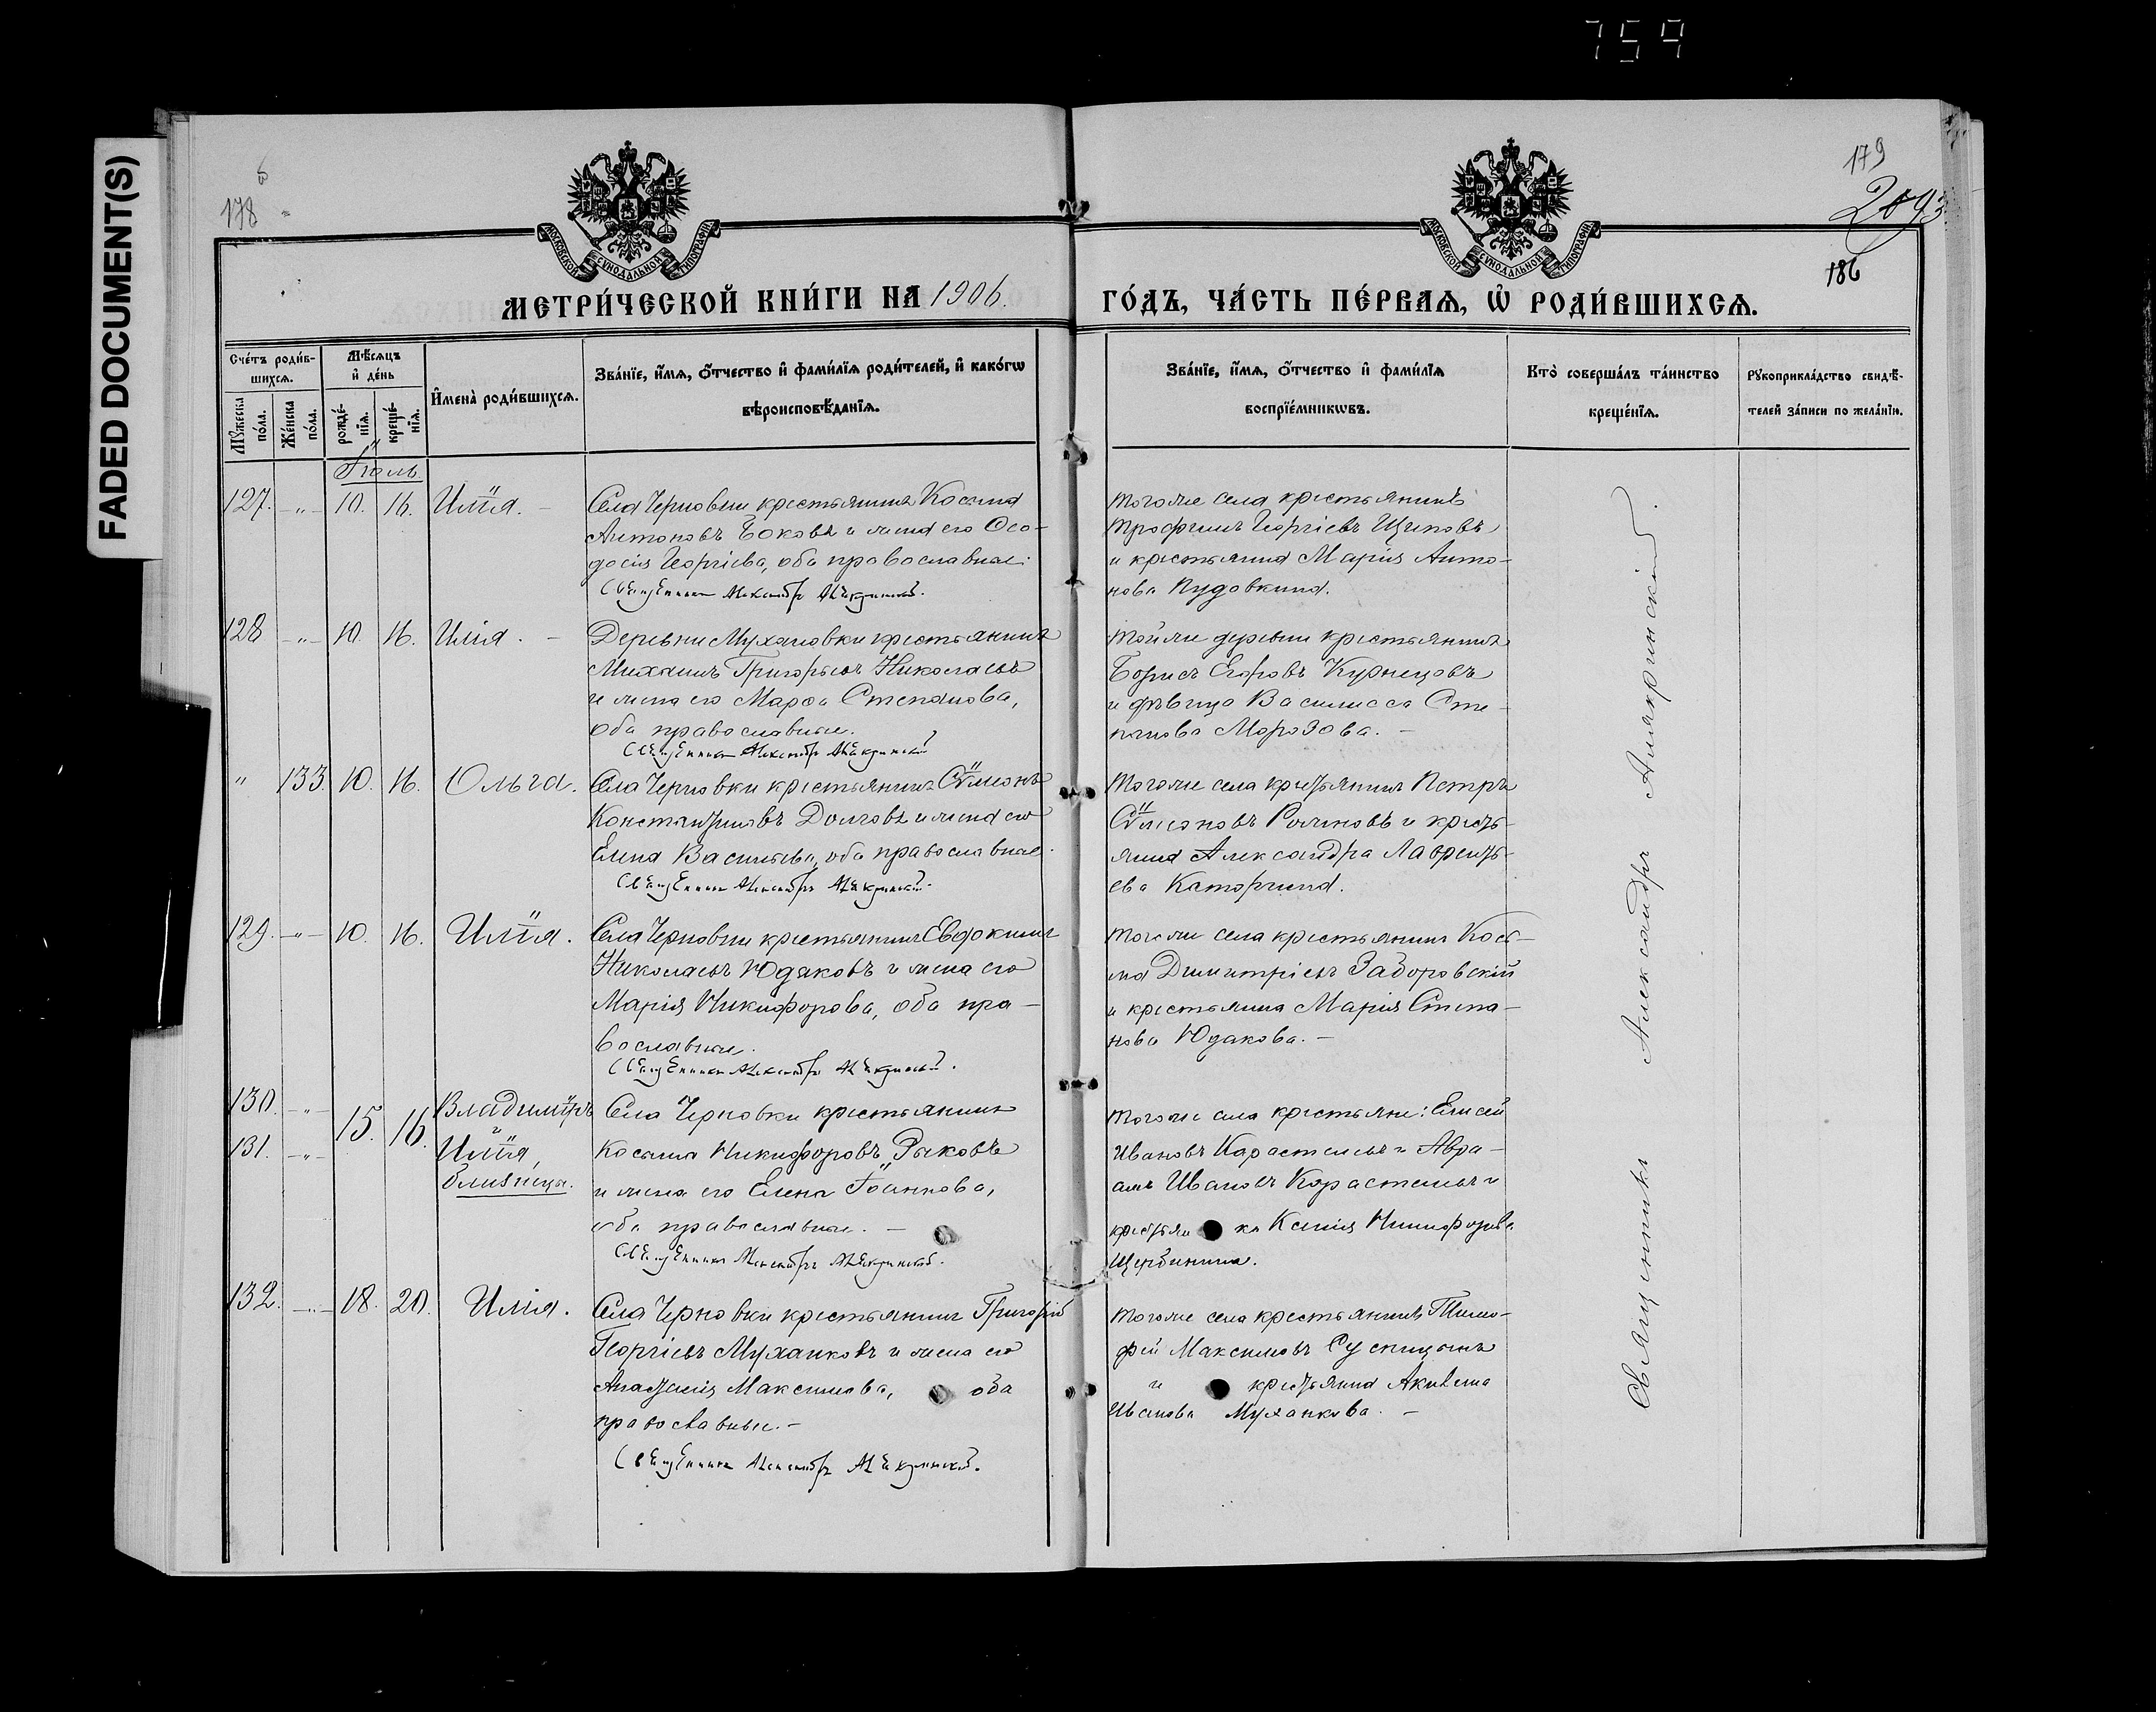 759
FADED DOCUMENT(S)
178
179
2093
186
МОСКОВСКОЙ СѴНОДАЛЬНОЙ ТИПОГРАФІИ
МОСКОВСКОЙ СѴНОДАЛЬНОЙ ТИПОГРАФІИ
МЕТРИ́ЧЕСКОЙ КНИ́ГИ НА 1906.
ГО́ДЪ, ЧА́СТЬ ПЕ́РВАѦ, Ѿ РОДИ́ВШИХСѦ.
Сче́тъ роди́в-
шихсѧ.
Мꙋ́жеска по́ла.
Же́нска по́ла.
Мѣ́сѧцъ
и҆ де́нь
рожде́-
нїѧ.
креще́-
нїѧ.
И҆мена̀ роди́вшихсѧ.
Зва́нїе, и҆́мѧ, ѻ҆́тчество и҆ фами́лїѧ роди́телей, и҆ како́гѡ
вѣроисповѣ́данїѧ.
Зва́нїе, и҆́мѧ, ѻ҆́тчество и҆ фами́лїѧ
воспрїе́мникѡвъ.
Кто̀ соверша́лъ та́инство
креще́нїѧ.
Рꙋкоприкла́дство свидѣ́-
телей за́писи по жела́нїю.
Іюль
127. -"- 10. 16. Илія. -
Села Черновки крестьянинъ Косьма
Антоновъ Боковъ и жена его Ѳео-
досія Георгіева, оба православные.
Священникъ Александръ Алякринскій.
тогоже села крестьянинъ
Трофимъ Георгіевъ Щиповъ
и крестьянка Марія Анто-
нова Пудовкина.
128 -"- 10. 16. Илія. -
Деревни Мухановки крестьянинъ
Михаилъ Григорьевъ Николаевъ
и жена его Марѳа Степанова,
оба православные.
Священникъ Александръ Алякринскій
тойже деревни крестьянинъ
Борисъ Егоровъ Кузнецовъ
и дѣвица Василисса Сте-
панова Морозова. -
" 133. 10. 16. Ольга.
Села Черновки крестьянинъ Сѵмеонъ
Константиновъ Долговъ и жена его
Елена Васильева, оба православные.
Священникъ Александръ Алякринскій.
тогоже села крестьянинъ Петръ
Сѵмеоновъ и кресть-
янка Александра Лаврентъ-
ева Каторгина.
129. -"- 10. 16. Илія.
Села Черновки крестьянинъ Евдокимъ
Николаевъ Юдаковъ и жена его
Марія Никифорова, оба пра-
вославные.
Священникъ Александръ Алякринскій.
тогоже села крестьянинъ Кось-
ма Димитріевъ Заборовскій
и крестьянка Марія Степа-
нова Юдакова. -
130. -"- 15. 16. Владиміръ
и
131. -"- Илія,
близнецы.
Села Черновки крестьянинъ
Косьма Никифоровъ Рыковъ
и жена его Елена Іоаннова,
оба православные. -
Священникъ Александръ Алякринскій.
тогоже села крестьяне: Елисей
Ивановъ Карастелевъ и Авра-
амъ Ивановъ Карастелевъ и
крестьянка Ксенія Никифорова
Щербинина.
132. -"- 18. 20. Илія.
Села Черновки крестьянинъ Григорій
Георгіевъ Муханковъ и жена его
Анастасія Максимова, оба
православные. -
Священникъ Александръ Алякринскій.
тогоже села крестьянинъ Тимо-
фей Максимовъ
и крестьянка Акилина
Иванова Муханкова. -
Священникъ Александръ Алякринскій.